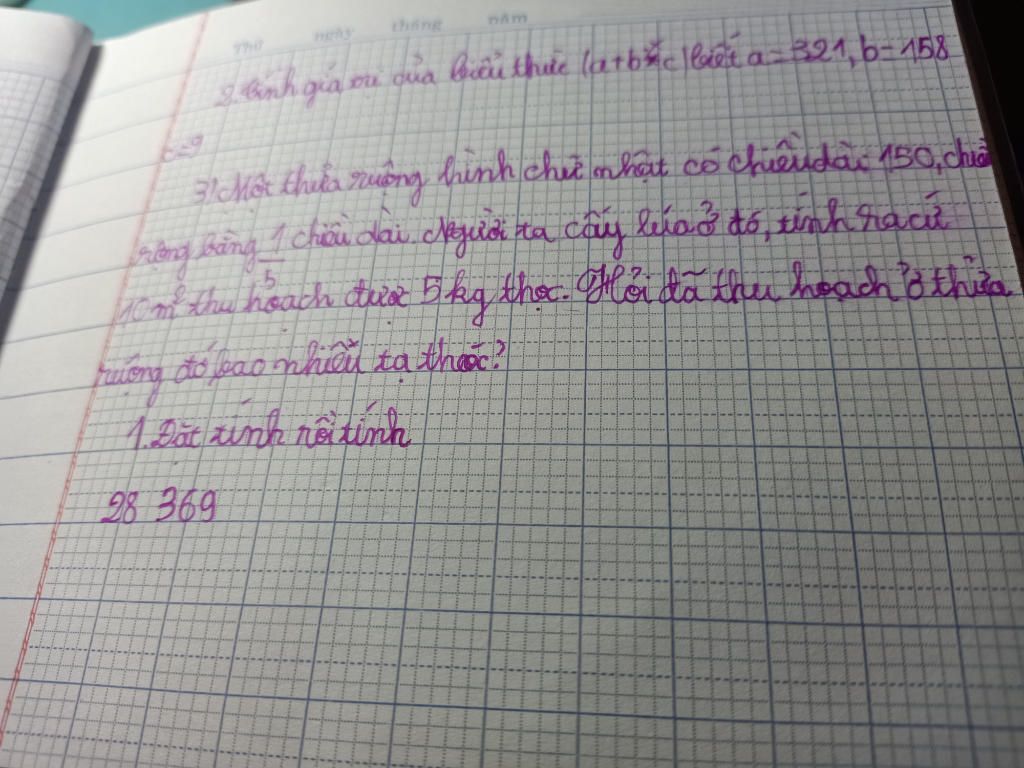 Thứ ngày tháng năm
2. Tính giá trị của biểu thức (a+b)×c biết a=321, b=158
c=9
3. Một thửa ruộng hình chữ nhật có chiều dài 150, chiều
rộng bằng 1/5 chiều dài. Người ta cấy lúa ở đó, tính ra cứ
10m² thu hoạch được 5 kg thóc. Hỏi đã thu hoạch ở thửa
ruộng đó bao nhiêu tạ thóc?
1. Đặt tính rồi tính
28 369